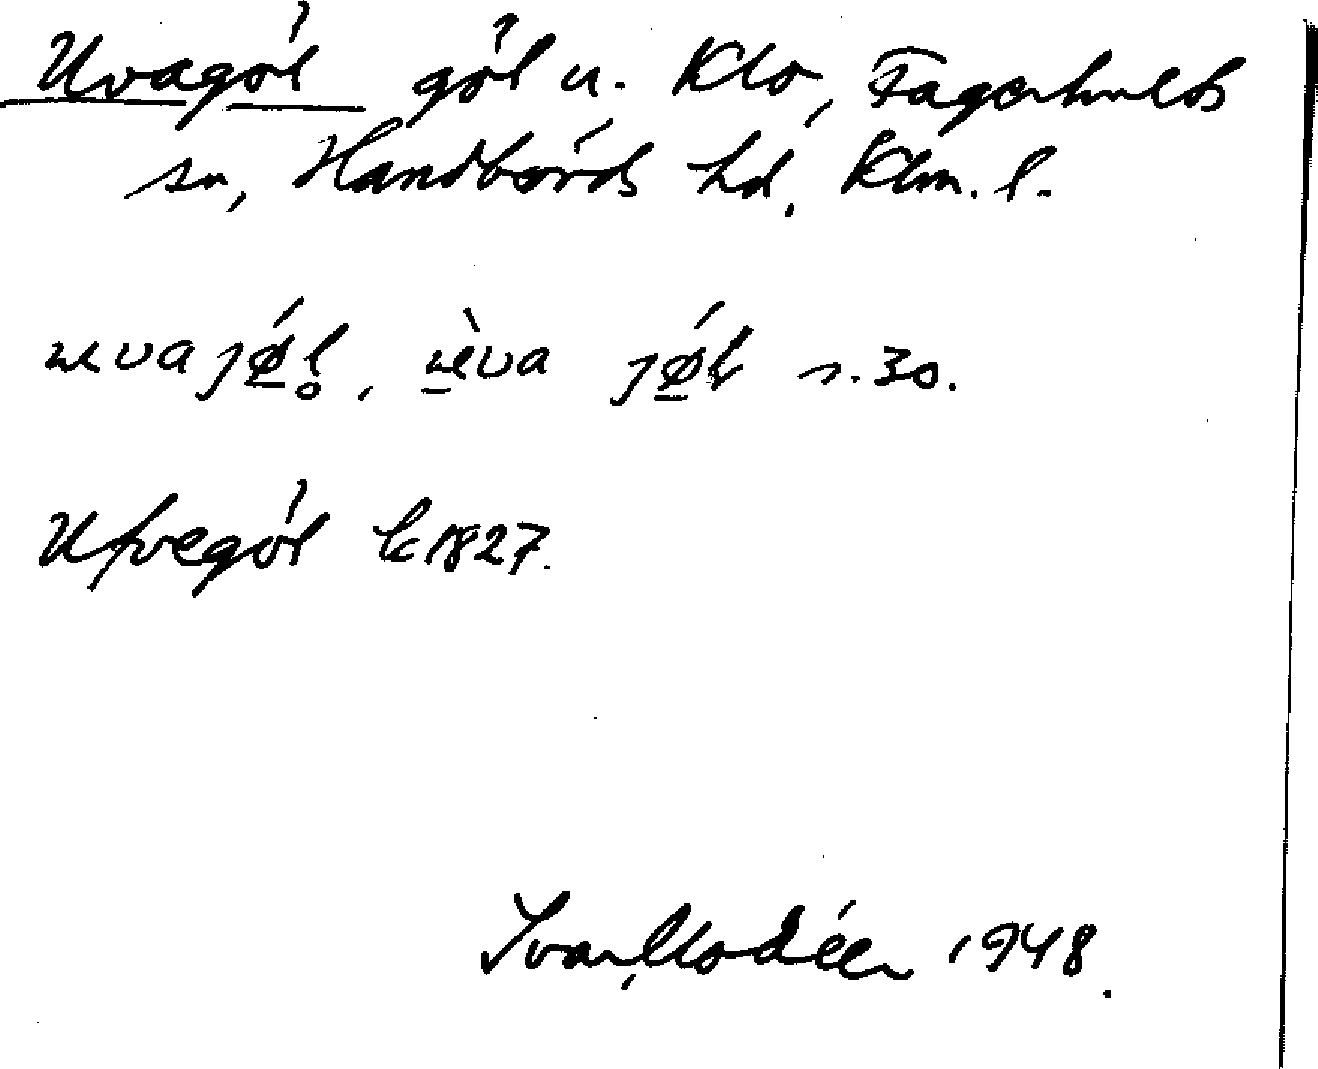 Uvagöl göl u. Klo, Fagerhults
sn, Handbörds hd, Klm. l.
s. 30.
Ufvegöl k 1827.
Ivar Modéer 1948.